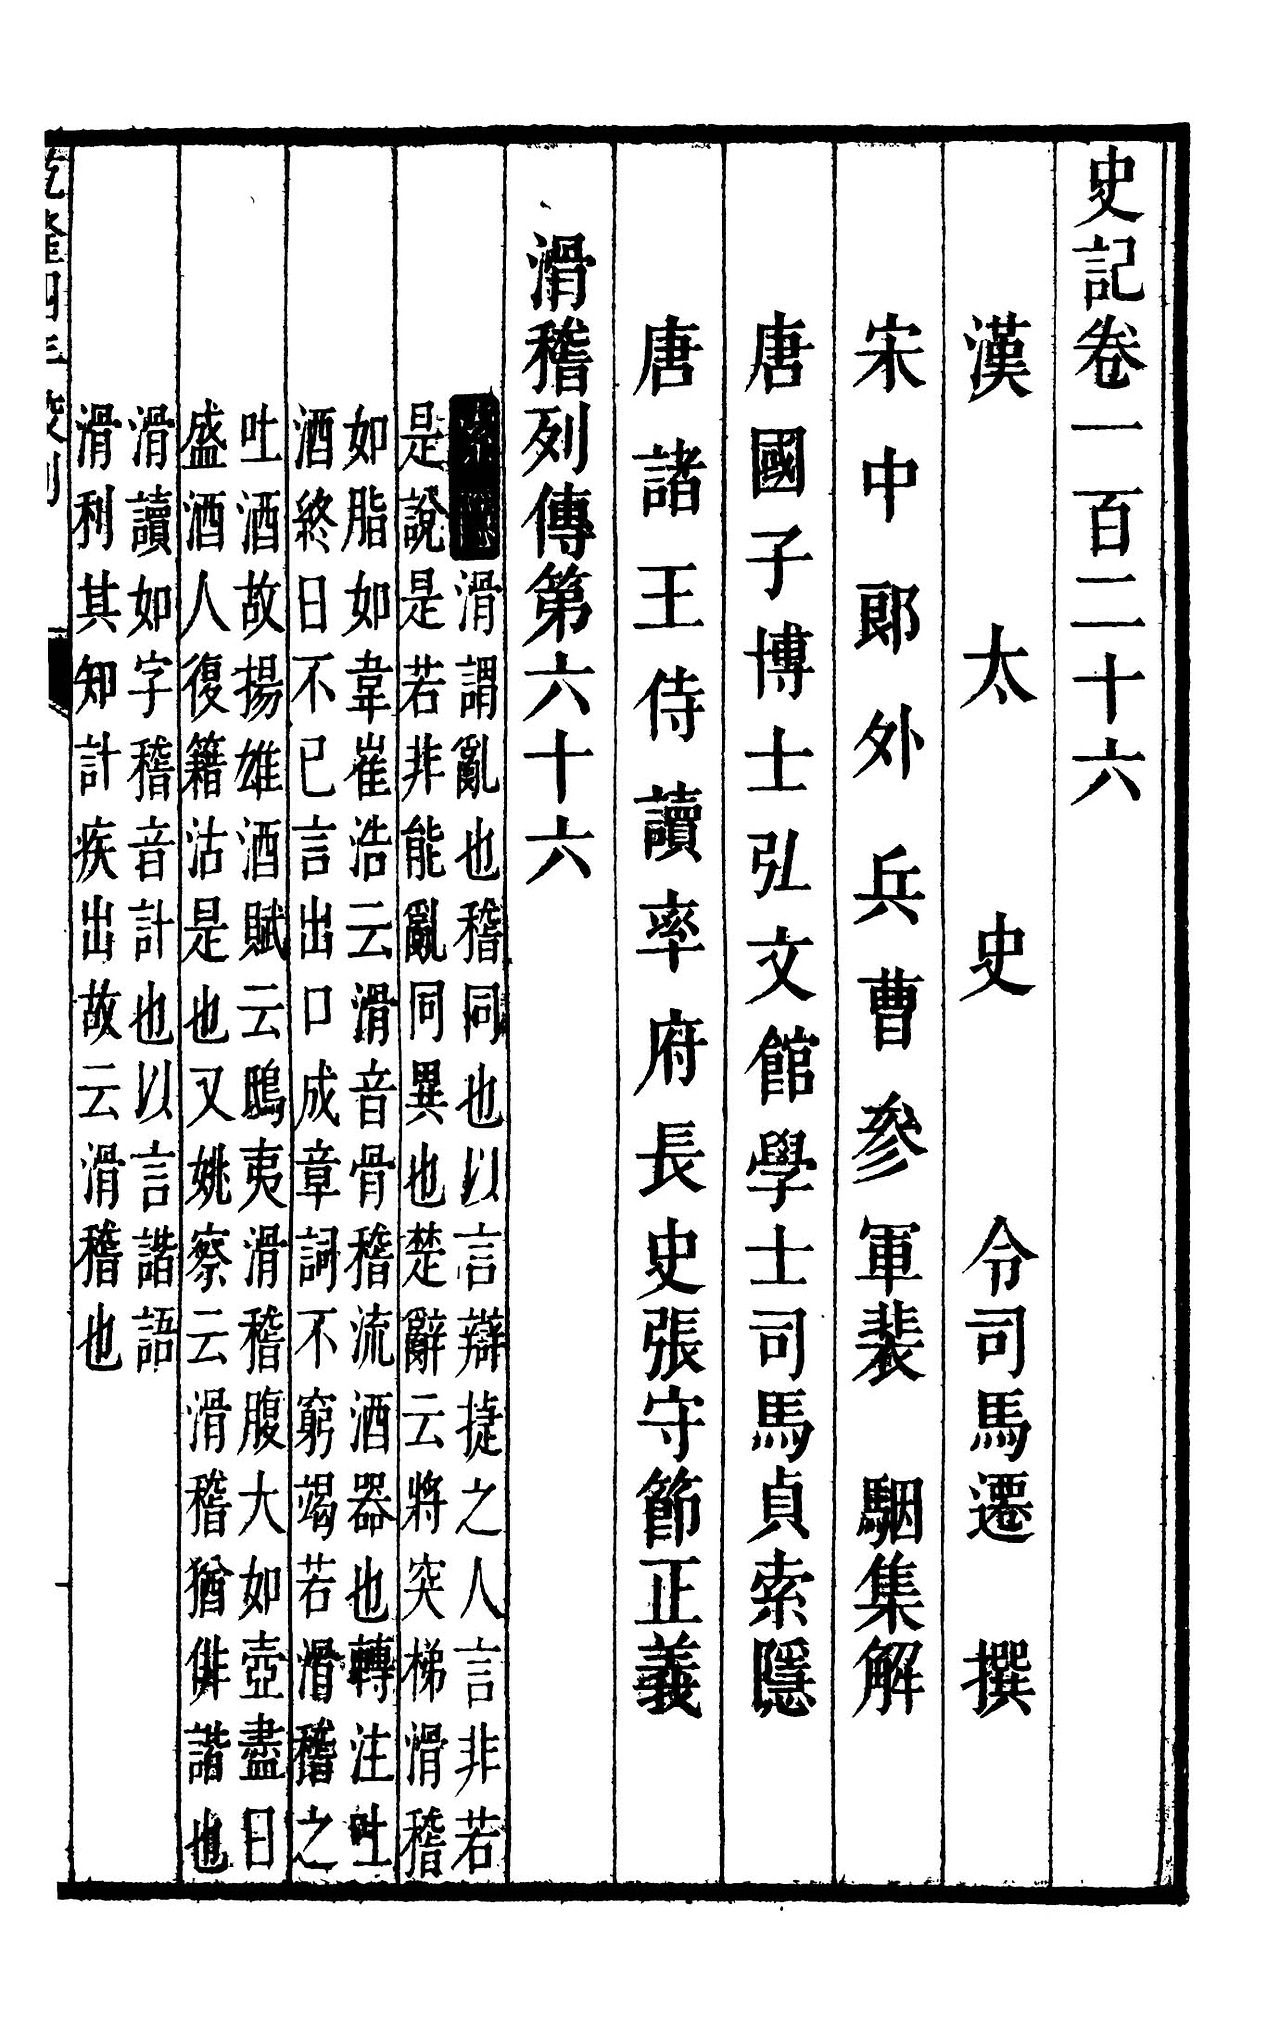 史記卷一百二十六
漢太史令司馬遷撰
宋中郎外兵曹參軍裴駰集解
唐國子博士弘文館學士司馬貞索隱
唐諸王侍讀率府長史張守節正義
滑稽列傳第六十六
索隱滑謂亂也稽同也以言辯捷之人言非若
是說是若非能亂同異也楚辭云將突梯滑稽
如脂如韋崔浩云滑音骨稽流酒器也轉注吐
酒終日不已言出口成章詞不窮竭若滑稽之
吐酒故揚雄酒賦云鴟夷滑稽腹大如壺盡日
盛酒人復籍沽是也又姚察云滑稽猶俳諧也
滑讀如字稽音計也以言諧語
滑利其知計疾出故云滑稽也
乾隆四年校刊